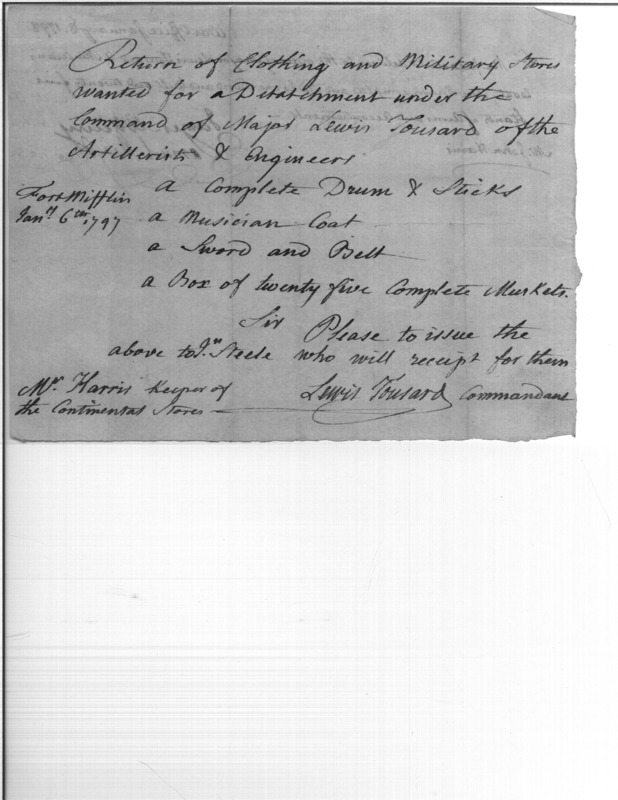 Return of Clothing and Military Stores
wanted for a Detatchment under the
Command of Major Lewis Tousard of the
Artillerists & Engineers
a Complete Drum & Sticks
Fort Mifflin
Jany 6th 1797
a Musician Coat
a Sword and Belt
a Box of twenty five Complete Muskets.
Sir Please to issue the
above to Jn Steele who will receipt for them
Mr Harris Keeper of
the Continental Stores
Lewis Tousard Commandant